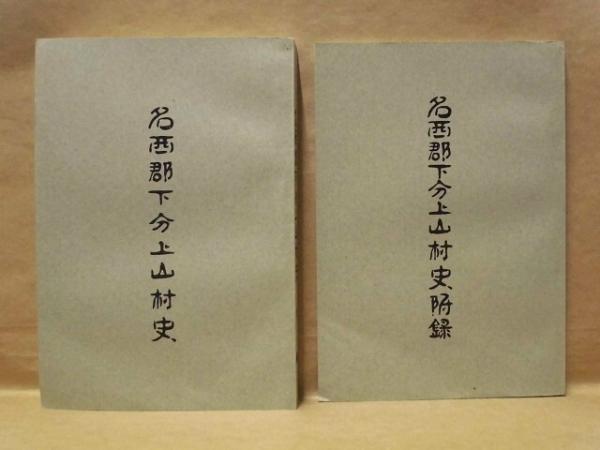 名西郡下分上山村史
名西郡下分上山村史附録